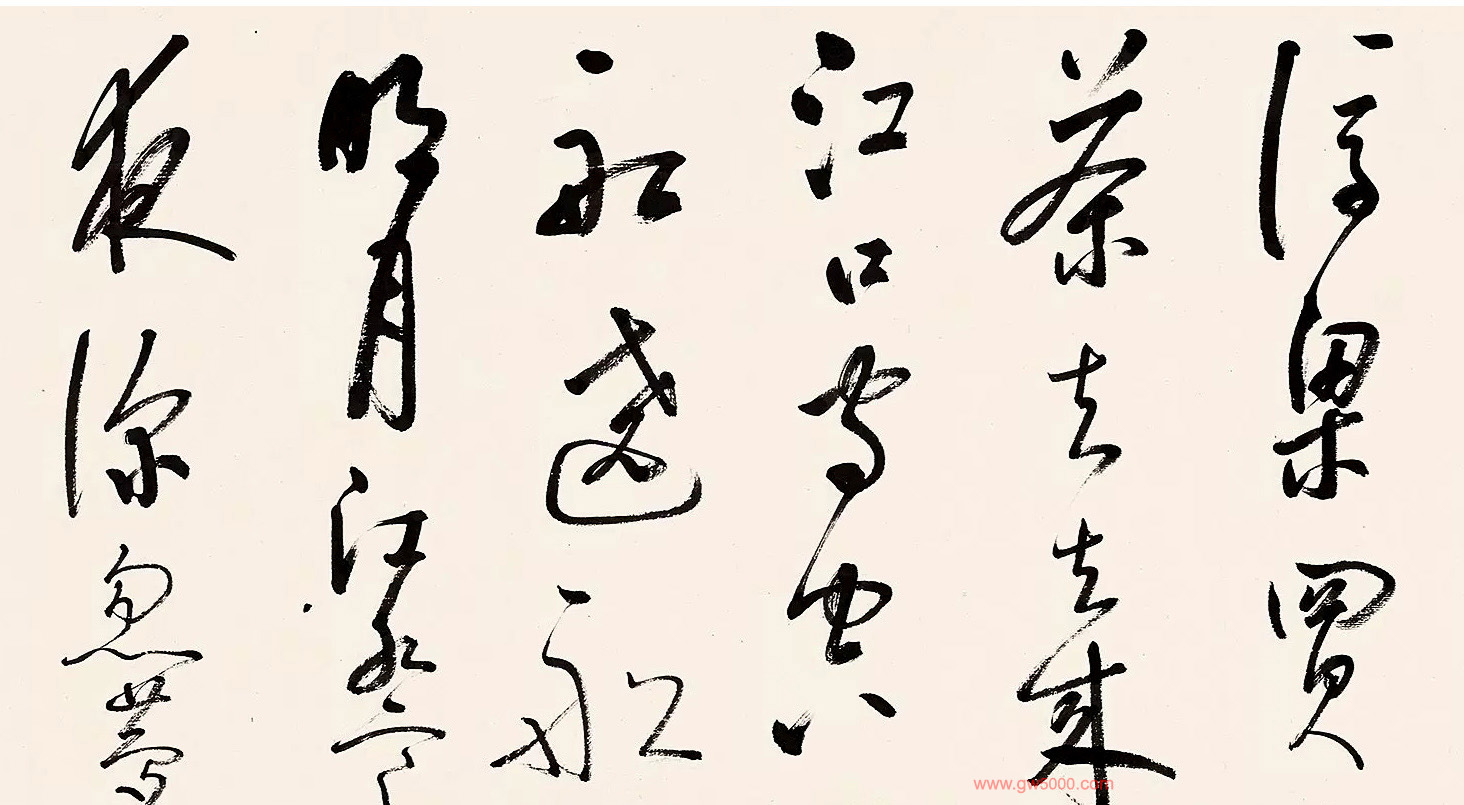 浮梁買
茶去去來
江口守空
船遶船
明月江水寒
夜深忽夢
www.gw5000.com